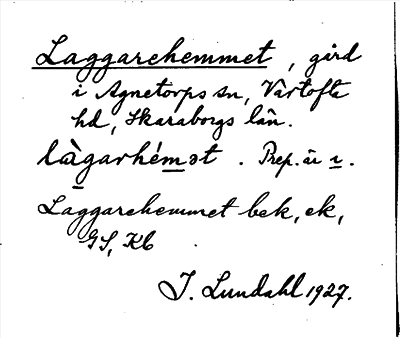 Laggarehemmet, gård
i Agnetorps sn, Vartofta
hd, Skaraborgs län.
làgarhémət. Prep. är ɩ.
Laggarehemmet bek, ek,
GS, Kb
I. Lundahl 1927.